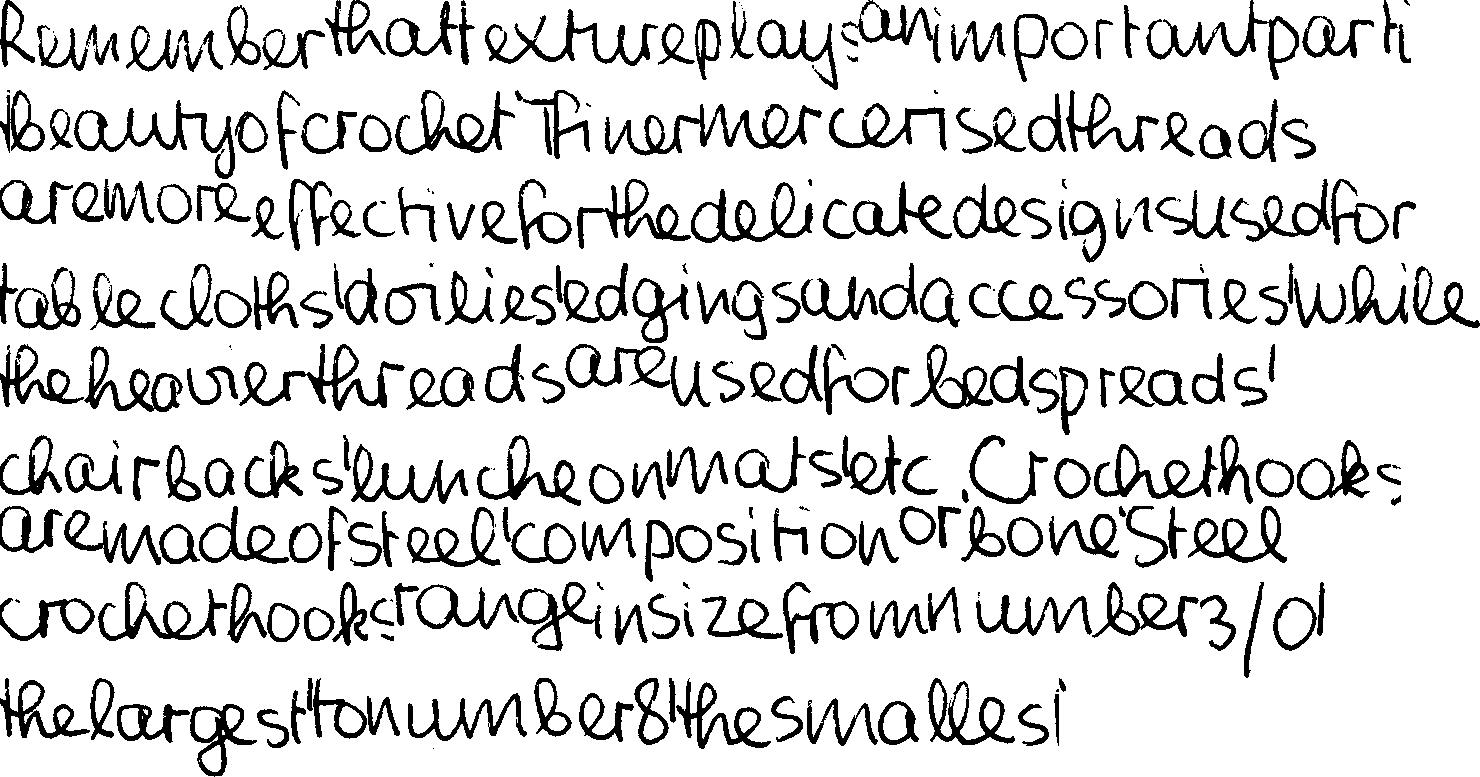 Remember that texture plays an important part i
beauty of crochet ' Finer mercerised threads
are more effective for the delicate designs used for
table cloths ' doilies ' edgings and accessories ' while
the heavier threads are used for bedspreads '
chair backs ' luncheon mats ' etc . Crochet hooks
are made of steel ' composition or bone ' Steel
crochet hooks range in size from number 3/0 '
the largest ' to number 8 ' the smallest